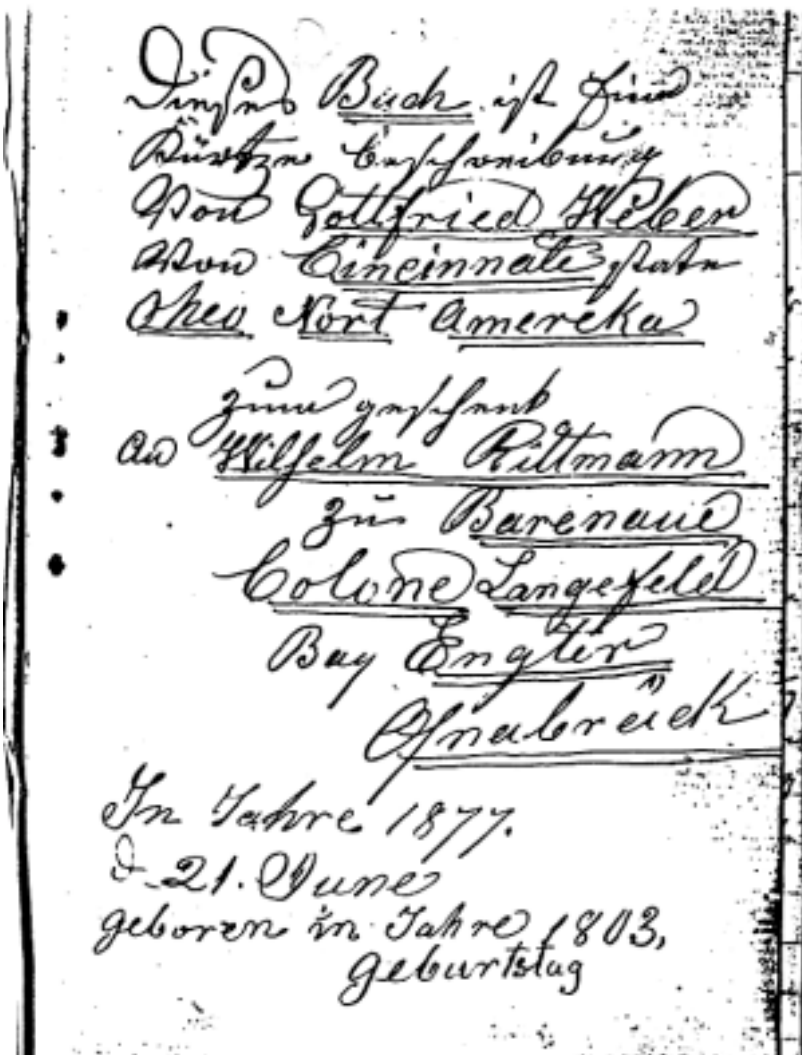 Dieses Buch ist Eine
Kürtze beschreibung
Von Gottfried Weber
Von Cincinnate state
Oheo Nort Amereka
zum geschenk
an Wilhelm Rittmann
zu Barenaue
Colone Langefeld
Bay Engter
Osnabrück
In Jahre 1877.
d. 21. June
geboren in Jahre 1803,
geburtstag